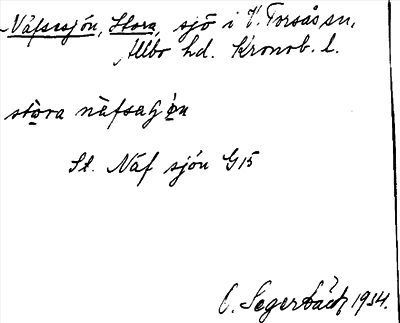 Näfsesjön, Stora, sjö i V. Torsås sn,
Allbo hd. Kronob. l.
stora näfsaɧön
St. Näf sjön G15
C. Segerbäck 1934.